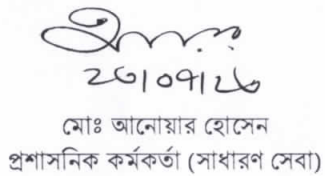 ২৩/০৭/২৩
মোঃ আনোয়ার হোসেন
প্রশাসনিক কর্মকর্তা (সাধারণ সেবা)